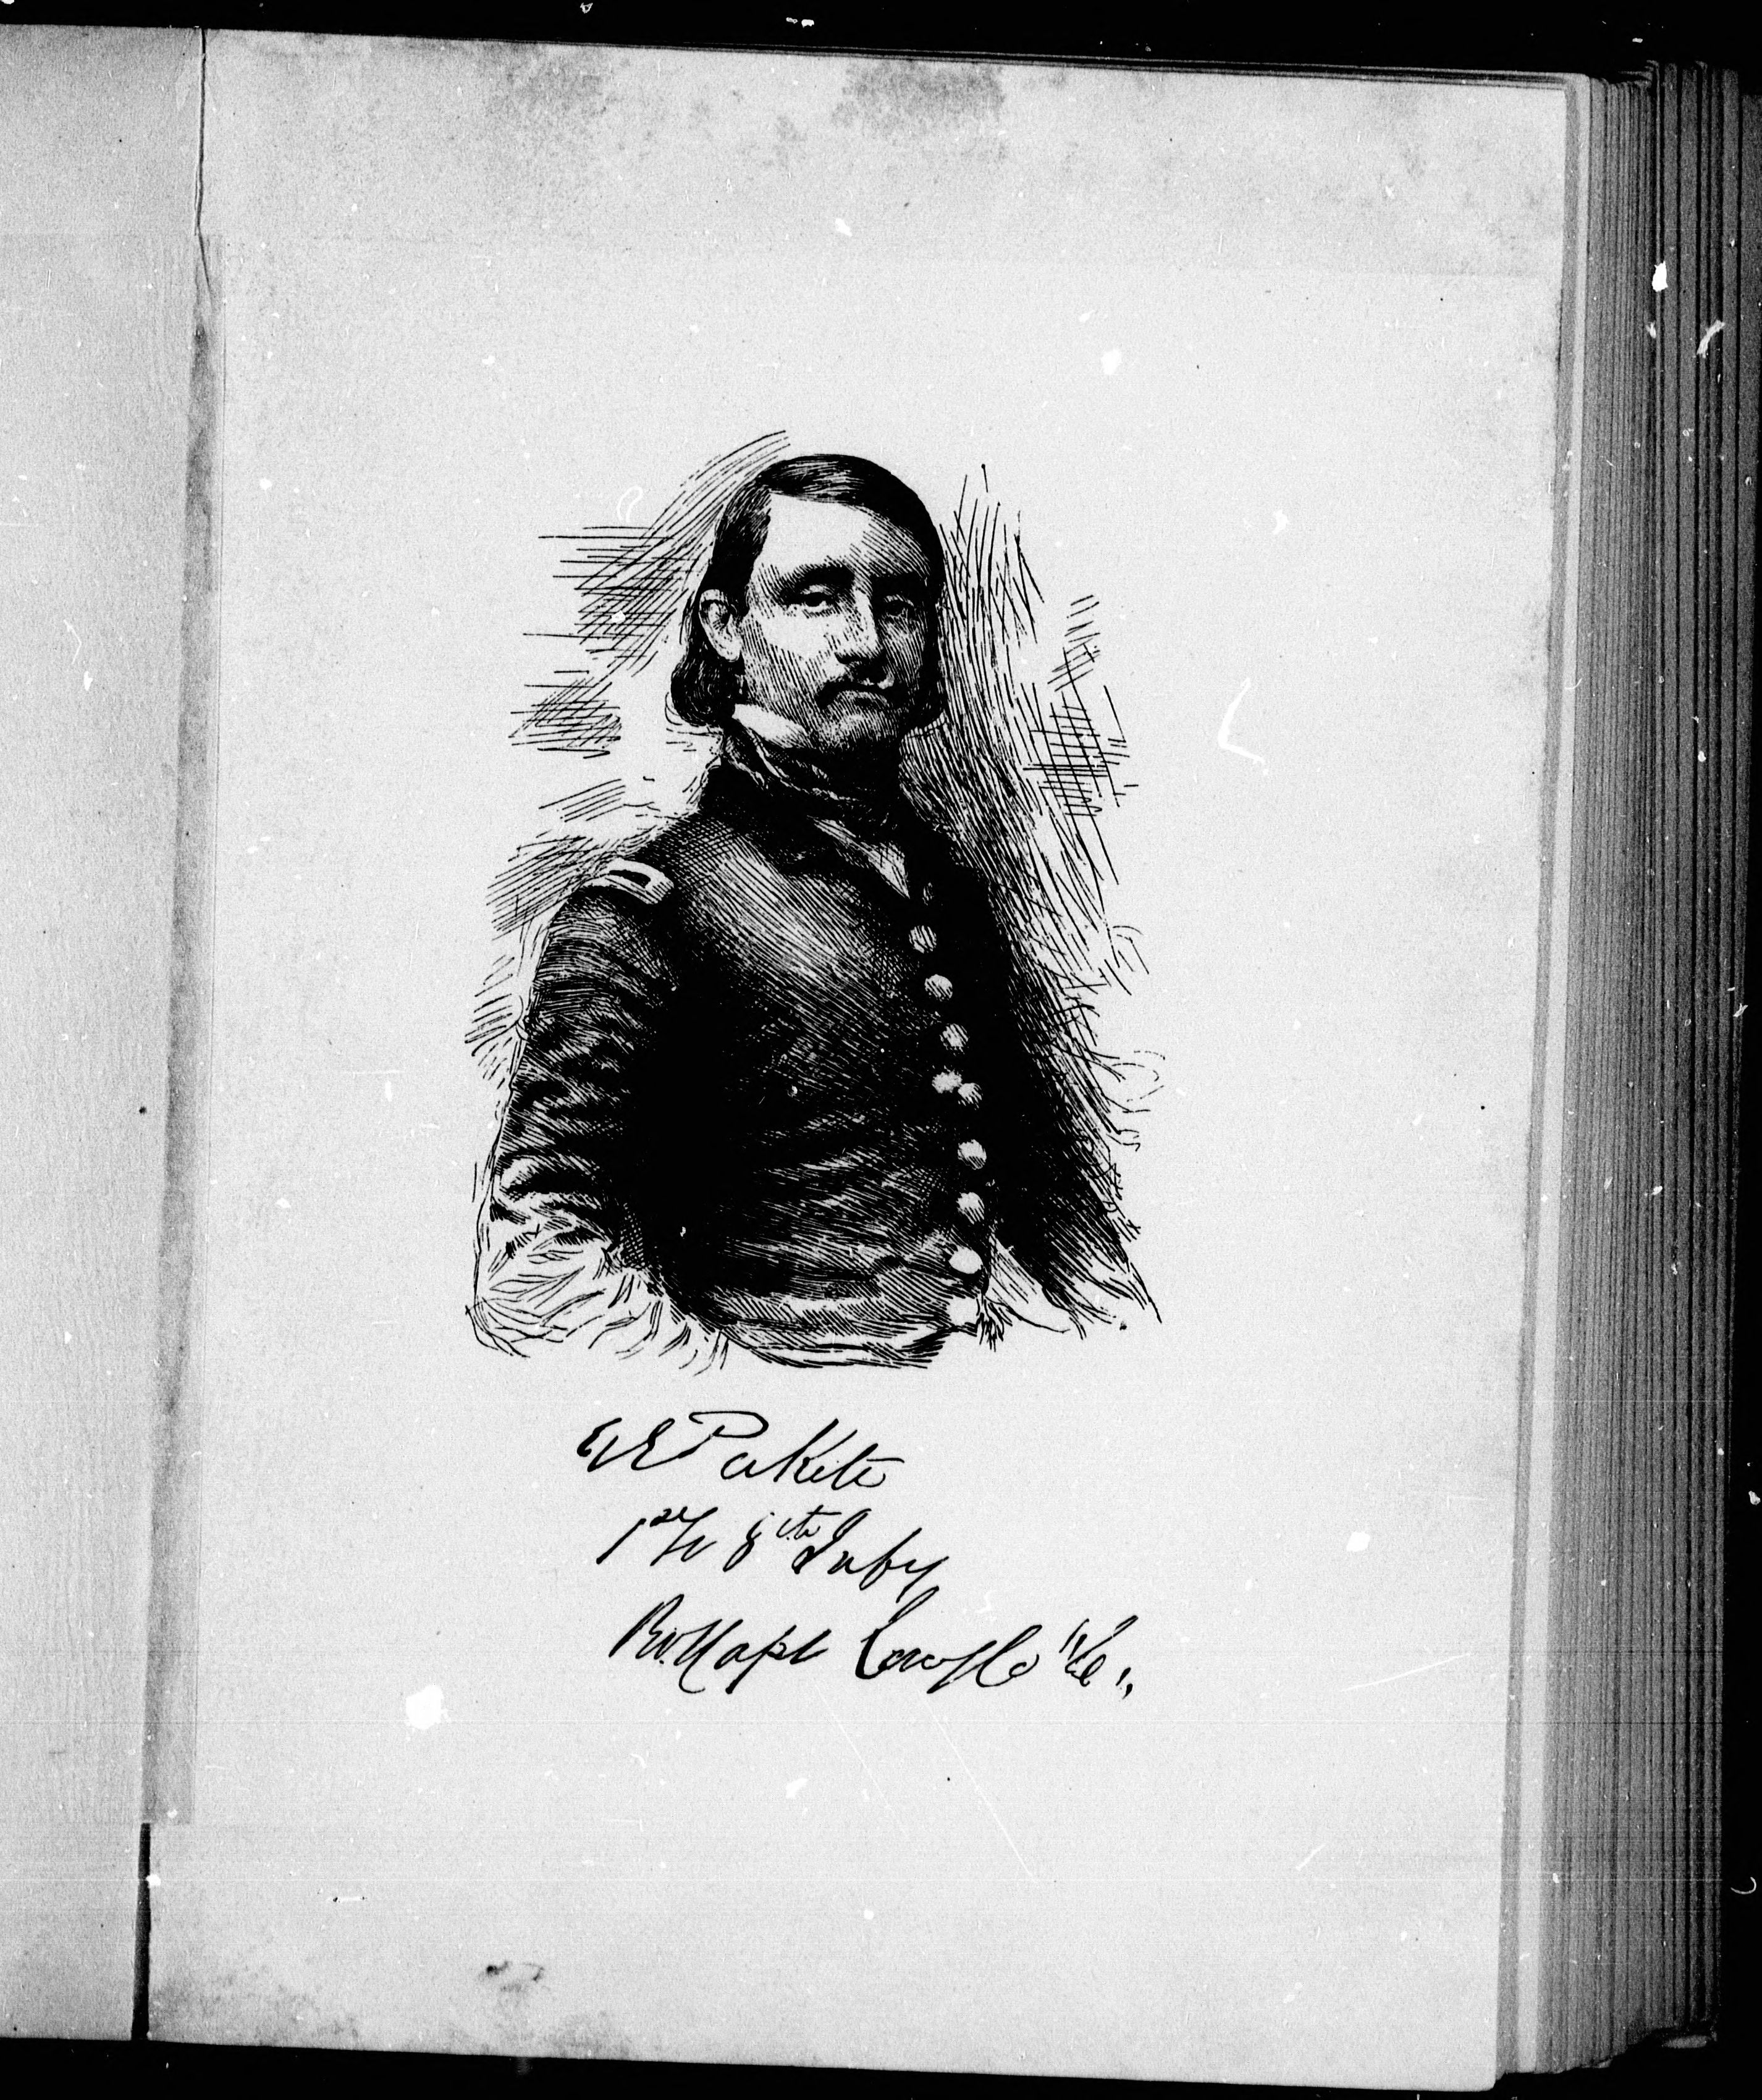 GE Pickett
1st Lt 8th Infy
Bvt Capt Comdg Co